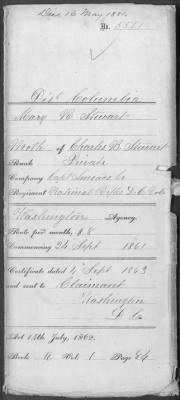 Died 16 May 1881
No. 5581
Dist Columbia
Mary B Stewart
Moth of Charles B Stewart
Rank Private
Company Capt Smeads Co
Regiment National Rifles D.C. Vols
Washington Agency.
Rate per month, $ 8
Commencing 24 Sept 1861
Certificate dated 4 Sept 1863
and sent to Claimant
Washington
D C
Act 14th July, 1862.
Book A Vol. 1 Page 84